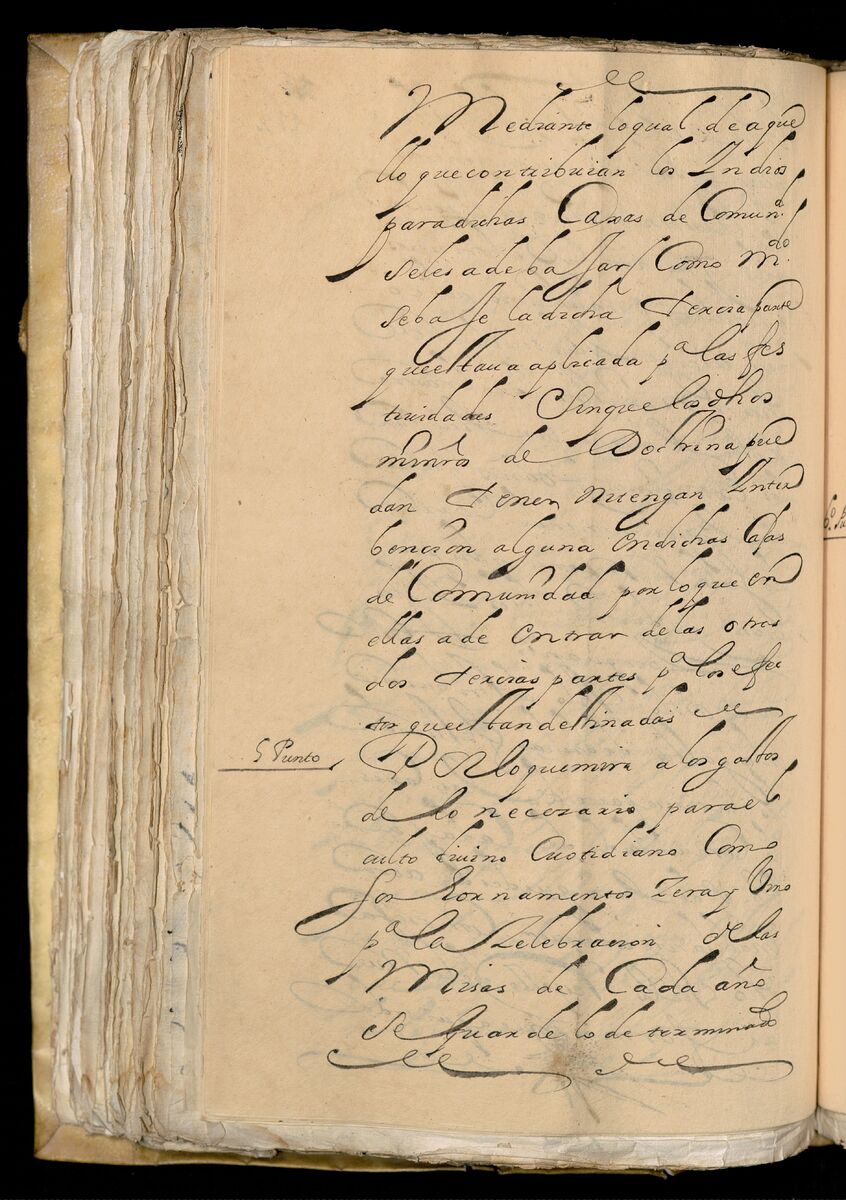 Mediante lo qual de aque
llo que contribuian los Indios
para dichas Caxas de Comun.d
se les a de bassar Como m.do
se basse la dicha tercia parte
que estaua aplicada p.a las fes
tiuidades Sin que los dhos
ministros de Doctrina pue
dan tener ni tengan Inter
bencion alguna en dichas Caxas
de Comunidad por lo que en
ellas a de entrar de las otras
dos tercias partes p.a los efec
tos que estan destinadas
5 Punto
Por lo que mira a los gastos
de lo necezario para el
culto diuino Cuotidiano Como
son hornamentos Zera y Vino
p.a la Zelebracion de las
Misas de Cada año
se Guarde lo determinado